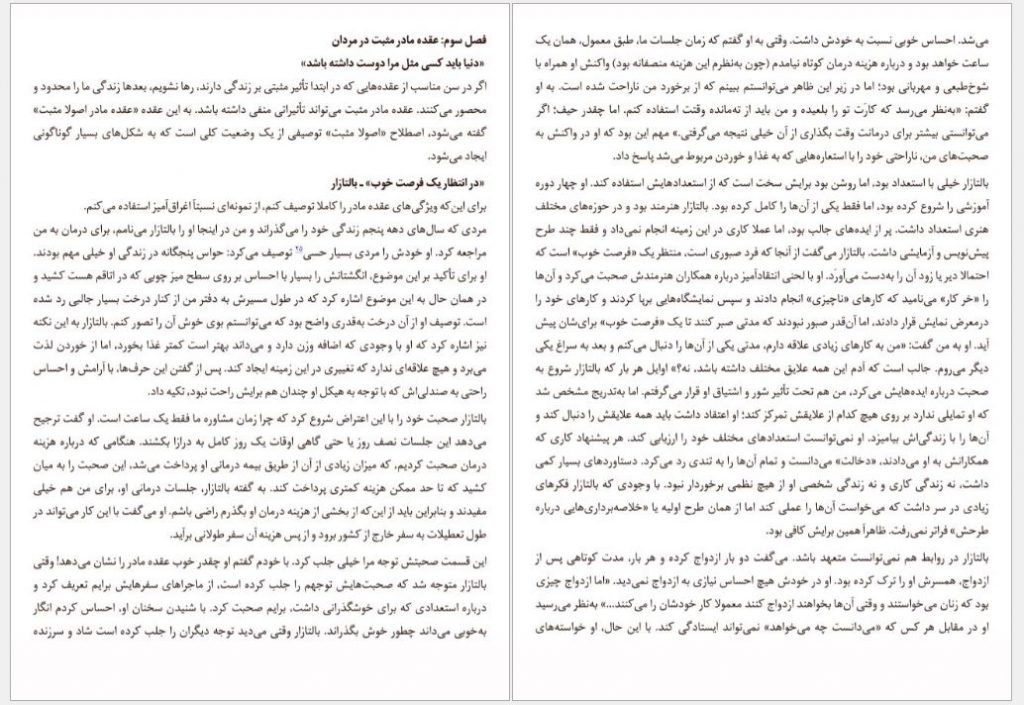 فصل سوم: عقده مادر مثبت در مردان
«دنیا باید کسی مثل مرا دوست داشته باشد»
اگر در سن مناسب از عقده‌هایی که در ابتدا تأثیر مثبتی بر زندگی دارند، رها نشویم، بعدها زندگی ما را محدود و
محصور می‌کنند. عقده مادر مثبت می‌تواند تأثیراتی منفی داشته باشد. به این عقده «عقده مادر اصولا مثبت»
گفته می‌شود، اصطلاح «اصولا مثبت» توصیفی از یک وضعیت کلی است که به شکل‌های بسیار گوناگونی
ایجاد می‌شود.
«در انتظار یک فرصت خوب» ـ بالتازار
برای این‌که ویژگی‌های عقده مادر را کاملا توصیف کنم، از نمونه‌ای نسبتاً اغراق‌آمیز استفاده می‌کنم.
مردی که سال‌های دهه پنجم زندگی خود را می‌گذراند و من در اینجا او را بالتازار می‌نامم، برای درمان به من
مراجعه کرد. او خودش را مردی بسیار حسی۲۵ توصیف می‌کرد: حواس پنجگانه در زندگی او خیلی مهم بودند.
او برای تأکید بر این موضوع، انگشتانش را بسیار با احساس بر روی سطح میز چوبی که در اتاقم هست کشید و
در همان حال به این موضوع اشاره کرد که در طول مسیرش به دفتر من از کنار درخت بسیار جالبی رد شده
است. توصیف او از آن درخت به‌قدری واضح بود که می‌توانستم بوی خوش آن را تصور کنم. بالتازار به این نکته
نیز اشاره کرد که او با وجودی که اضافه وزن دارد و می‌داند بهتر است کمتر غذا بخورد، اما از خوردن لذت
می‌برد و هیچ علاقه‌ای ندارد که تغییری در این زمینه ایجاد کند. پس از گفتن این حرف‌ها، با آرامش و احساس
راحتی به صندلی‌اش که با توجه به هیکل او چندان هم برایش راحت نبود، تکیه داد.
بالتازار صحبت خود را با این اعتراض شروع کرد که چرا زمان مشاوره ما فقط یک ساعت است. او گفت ترجیح
می‌دهد این جلسات نصف روز یا حتی گاهی اوقات یک روز کامل به درازا بکشند. هنگامی که درباره هزینه
درمان صحبت کردیم، که میزان زیادی از آن از طریق بیمه درمانی او پرداخت می‌شد، این صحبت را به میان
کشید که تا حد ممکن هزینه کمتری پرداخت کند. به گفته بالتازار، جلسات درمانی او، برای من هم خیلی
مفیدند و بنابراین باید از این‌که از بخشی از هزینه درمان او بگذرم راضی باشم. او می‌گفت با این کار می‌تواند در
طول تعطیلات به سفر خارج از کشور برود و از پس هزینه آن سفر طولانی برآید.
این قسمت صحبتش توجه مرا خیلی جلب کرد. با خودم گفتم او چقدر خوب عقده مادر را نشان می‌دهد! وقتی
بالتازار متوجه شد که صحبت‌هایش توجهم را جلب کرده است، از ماجراهای سفرهایش برایم تعریف کرد و
درباره استعدادی که برای خوشگذرانی داشت، برایم صحبت کرد. با شنیدن سخنان او، احساس کردم انگار
به‌خوبی می‌داند چطور خوش بگذراند. بالتازار وقتی می‌دید توجه دیگران را جلب کرده است شاد و سرزنده
می‌شد. احساس خوبی نسبت به خودش داشت. وقتی به او گفتم که زمان جلسات ما، طبق معمول، همان یک
ساعت خواهد بود و درباره هزینه درمان کوتاه نیامدم (چون به‌نظرم این هزینه منصفانه بود) واکنش او همراه با
شوخ‌طبعی و مهربانی بود؛ اما در زیر این ظاهر می‌توانستم ببینم که از برخورد من ناراحت شده است. به او
گفتم: «به‌نظر می‌رسد که کارَت تو را بلعیده و من باید از ته‌مانده وقتت استفاده کنم. اما چقدر حیف؛ اگر
می‌توانستی بیشتر برای درمانت وقت بگذاری از آن خیلی نتیجه می‌گرفتی.» مهم این بود که او در واکنش به
صحبت‌های من، ناراحتی خود را با استعاره‌هایی که به غذا و خوردن مربوط می‌شد پاسخ داد.
بالتازار خیلی با استعداد بود، اما روشن بود برایش سخت است که از استعدادهایش استفاده کند. او چهار دوره
آموزشی را شروع کرده بود، اما فقط یکی از آن‌ها را کامل کرده بود. بالتازار هنرمند بود و در حوزه‌های مختلف
هنری استعداد داشت. پر از ایده‌های جالب بود، اما عملا کاری در این زمینه انجام نمی‌داد و فقط چند طرح
پیش‌نویس و آزمایشی داشت. بالتازار می‌گفت از آنجا که فرد صبوری است، منتظر یک «فرصت خوب» است که
احتمالا دیر یا زود آن را به‌دست می‌آورَد. او با لحنی انتقادآمیز درباره همکاران هنرمندش صحبت می‌کرد و آن‌ها
را «خر کار» می‌نامید که کارهای «ناچیزی» انجام دادند و سپس نمایشگاه‌هایی برپا کردند و کارهای خود را
درمعرض نمایش قرار دادند، اما آن‌قدر صبور نبودند که مدتی صبر کنند تا یک «فرصت خوب» برای‌شان پیش
آید. او به من گفت: «من به کارهای زیادی علاقه دارم، مدتی یکی از آن‌ها را دنبال می‌کنم و بعد به سراغ یکی
دیگر می‌روم. جالب است که آدم این همه علایق مختلف داشته باشد، نه؟» اوایل هر بار که بالتازار شروع به
صحبت درباره ایده‌هایش می‌کرد، من هم تحت تأثیر شور و اشتیاق او قرار می‌گرفتم. اما به‌تدریج مشخص شد
که او تمایلی ندارد بر روی هیچ کدام از علایقش تمرکز کند؛ او اعتقاد داشت باید همه علایقش را دنبال کند و
آن‌ها را با زندگی‌اش بیامیزد. او نمی‌توانست استعدادهای مختلف خود را ارزیابی کند. هر پیشنهاد کاری که
همکارانش به او می‌دادند، «دخالت» می‌دانست و تمام آن‌ها را به تندی رد می‌کرد. دستاوردهای بسیار کمی
داشت، نه زندگی کاری و نه زندگی شخصی او از هیچ نظمی برخوردار نبود. با وجودی که بالتازار فکرهای
زیادی در سر داشت که می‌خواست آن‌ها را عملی کند اما از همان طرح اولیه یا «خلاصه‌برداری‌هایی درباره
طرحش» فراتر نمی‌رفت. ظاهراً همین برایش کافی بود.
بالتازار در روابط هم نمی‌توانست متعهد باشد. می‌گفت دو بار ازدواج کرده و هر بار، مدت کوتاهی پس از
ازدواج، همسرش او را ترک کرده بود. او در خودش هیچ احساس نیازی به ازدواج نمی‌دید. «اما ازدواج چیزی
بود که زنان می‌خواستند و وقتی آن‌ها بخواهند ازدواج کنند معمولا کار خودشان را می‌کنند...» به‌نظر می‌رسید
او در مقابل هر کس که «می‌دانست چه می‌خواهد» نمی‌تواند ایستادگی کند. با این حال، او خواسته‌های